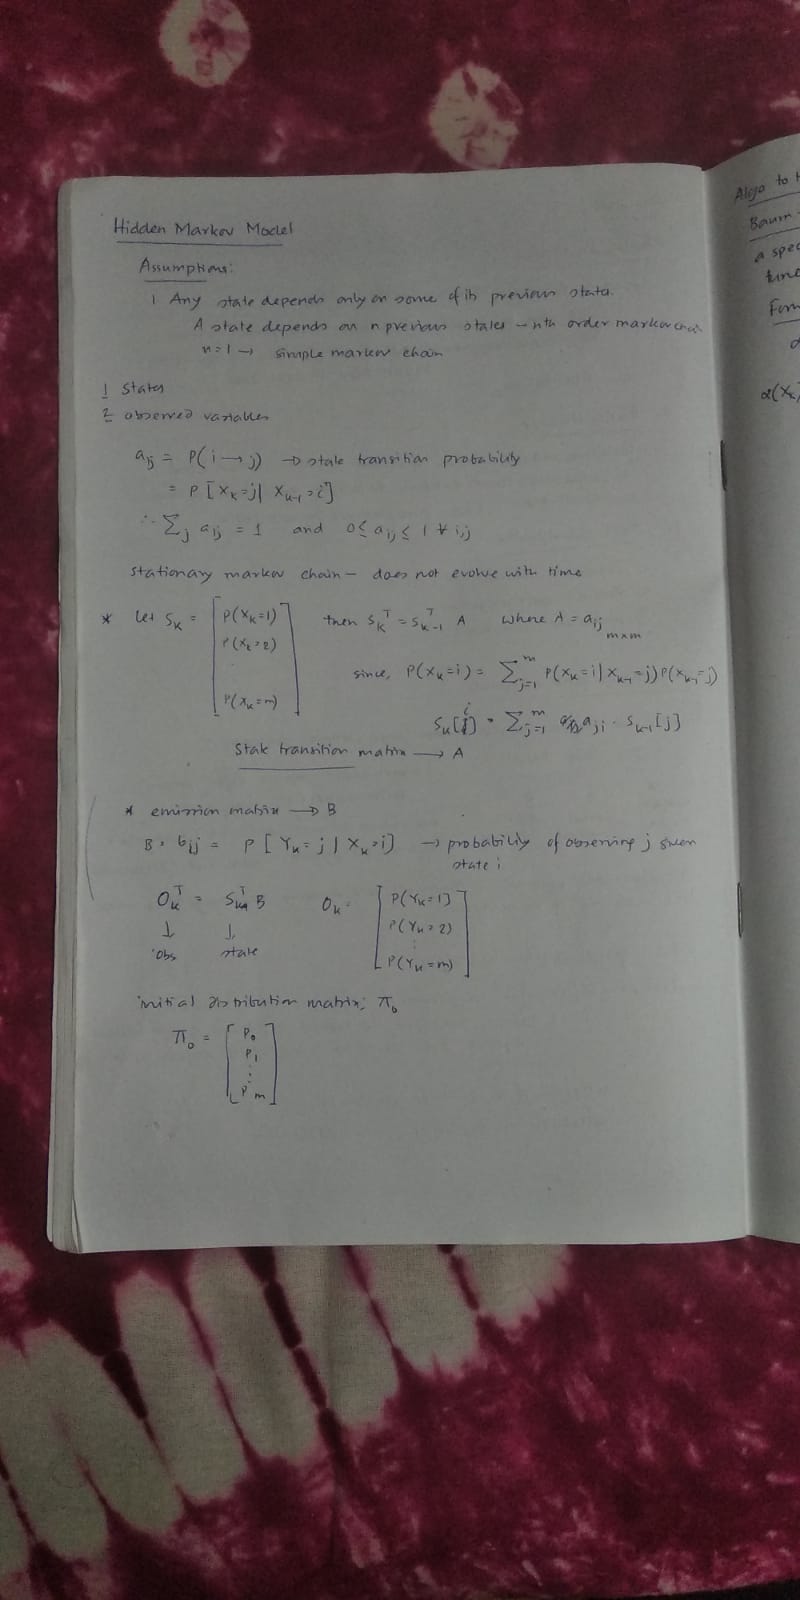 Hidden Markov Model
Assumptions:
1 Any state depends only on some of its previous states.
A state depends on n previous states → nth order markov chain
n=1 → simple markov chain
1 States
2 observed variables
aij = P(i → j) → state transition probability
= P[Xk=j | Xk-1=i]
∴ Σj aij = 1 and 0≤ aij ≤ 1 ∀ i,j
Stationary markov chain – does not evolve with time
* Let Sk = [P(Xk=1) P(Xk=2) P(Xk=m)] then Sk^T = Sk-1^T A where A = aij m×m
since, P(Xk=i) = Σ j=1 m P(Xk=i | Xk-1=j) P(Xk-1=j)
Sk[i] = Σ j=1 m aji . Sk-1[j]
State transition matrix → A
* emission matrix → B
B = bij = P[Yk=j | Xk=i] → probability of observing j given
state i
Ok^T = Sk^T B Ok = [P(Yk=1) P(Yk=2) ⋮ P(Yk=m)]
↓ ↓
obs state
initial distribution matrix, π0
π0 = [P0 P1 ⋮ Pm]
Algo to
Baum -
a spec
func
α(Xk